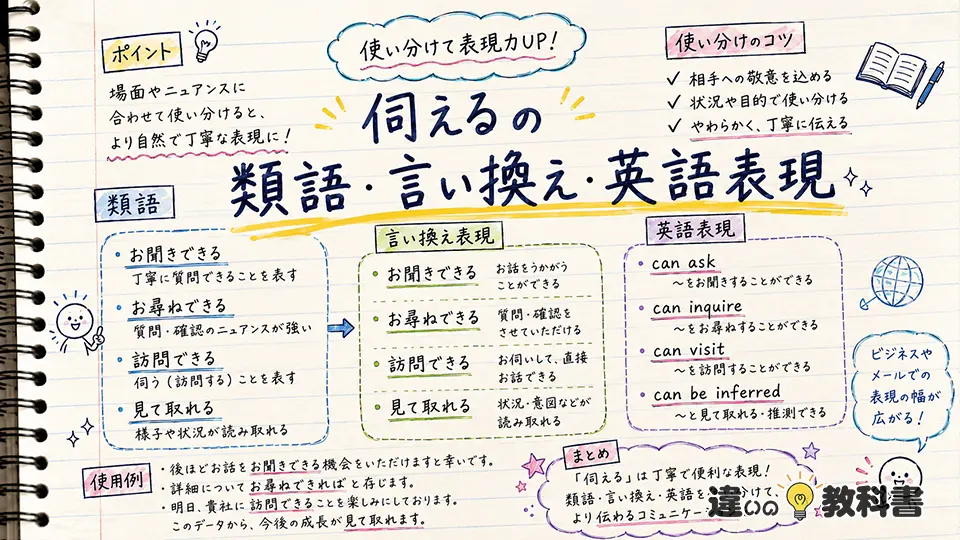 使い分けて表現力UP!
ポイント
場面やニュアンスに
合わせて使い分けると、
より自然で丁寧な表現に!
使い分けのコツ
✓ 相手への敬意を込める
✓ 状況や目的で使い分ける
✓ やわらかく、丁寧に伝える
伺えるの
類語・言い換え・英語表現
類語
・お聞きできる
丁寧に質問できることを表す
・お尋ねできる
質問・確認のニュアンスが強い
・訪問できる
伺う(訪問する)ことを表す
・見て取れる
様子や状況が読み取れる
言い換え表現
・お聞きできる
お話をうかがう
ことができる
・お尋ねできる
質問・確認を
させていただける
・訪問できる
お伺いして、直接
お話できる
・見て取れる
状況・意図などが
読み取れる
英語表現
・can ask
〜をお聞きすることができる
・can inquire
〜をお尋ねすることができる
・can visit
〜を訪問することができる
・can be inferred
〜と見て取れる・推測できる
ビジネスや
メールでの
表現の幅が
広がる!
使用例
・後ほどお話をお聞きできる機会をいただけますと幸いです。
・詳細についてお尋ねできればと存じます。
・明日、貴社に訪問できることを楽しみにしております。
このデータから、今後の成長が見て取れます。
まとめ
「伺える」は丁寧で便利な表現!
類語・言い換え・英語を 分けて、
より伝わるコミュニケー
違いの教科書